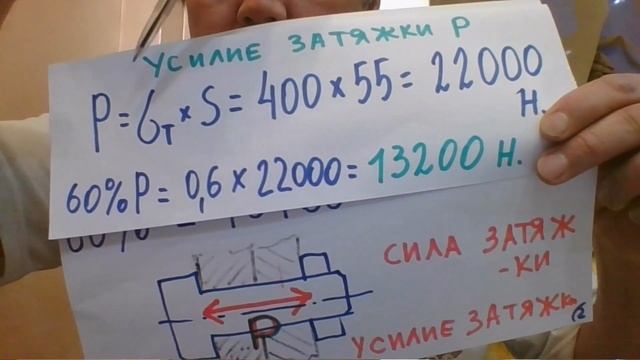 УСИЛИЕ ЗАТЯЖКИ P
P = Gт × S = 400 × 55 = 22000 Н.
60% P = 0,6 × 22000 = 13200 Н.
СИЛА ЗАТЯЖ
-КИ
P
УСИЛИЕ ЗАТЯЖКИ